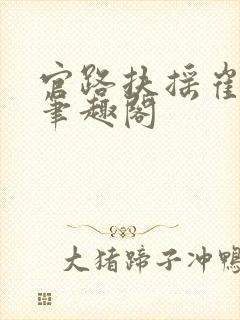 官路扶摇崔
笔趣阁
大猪蹄子冲鸭